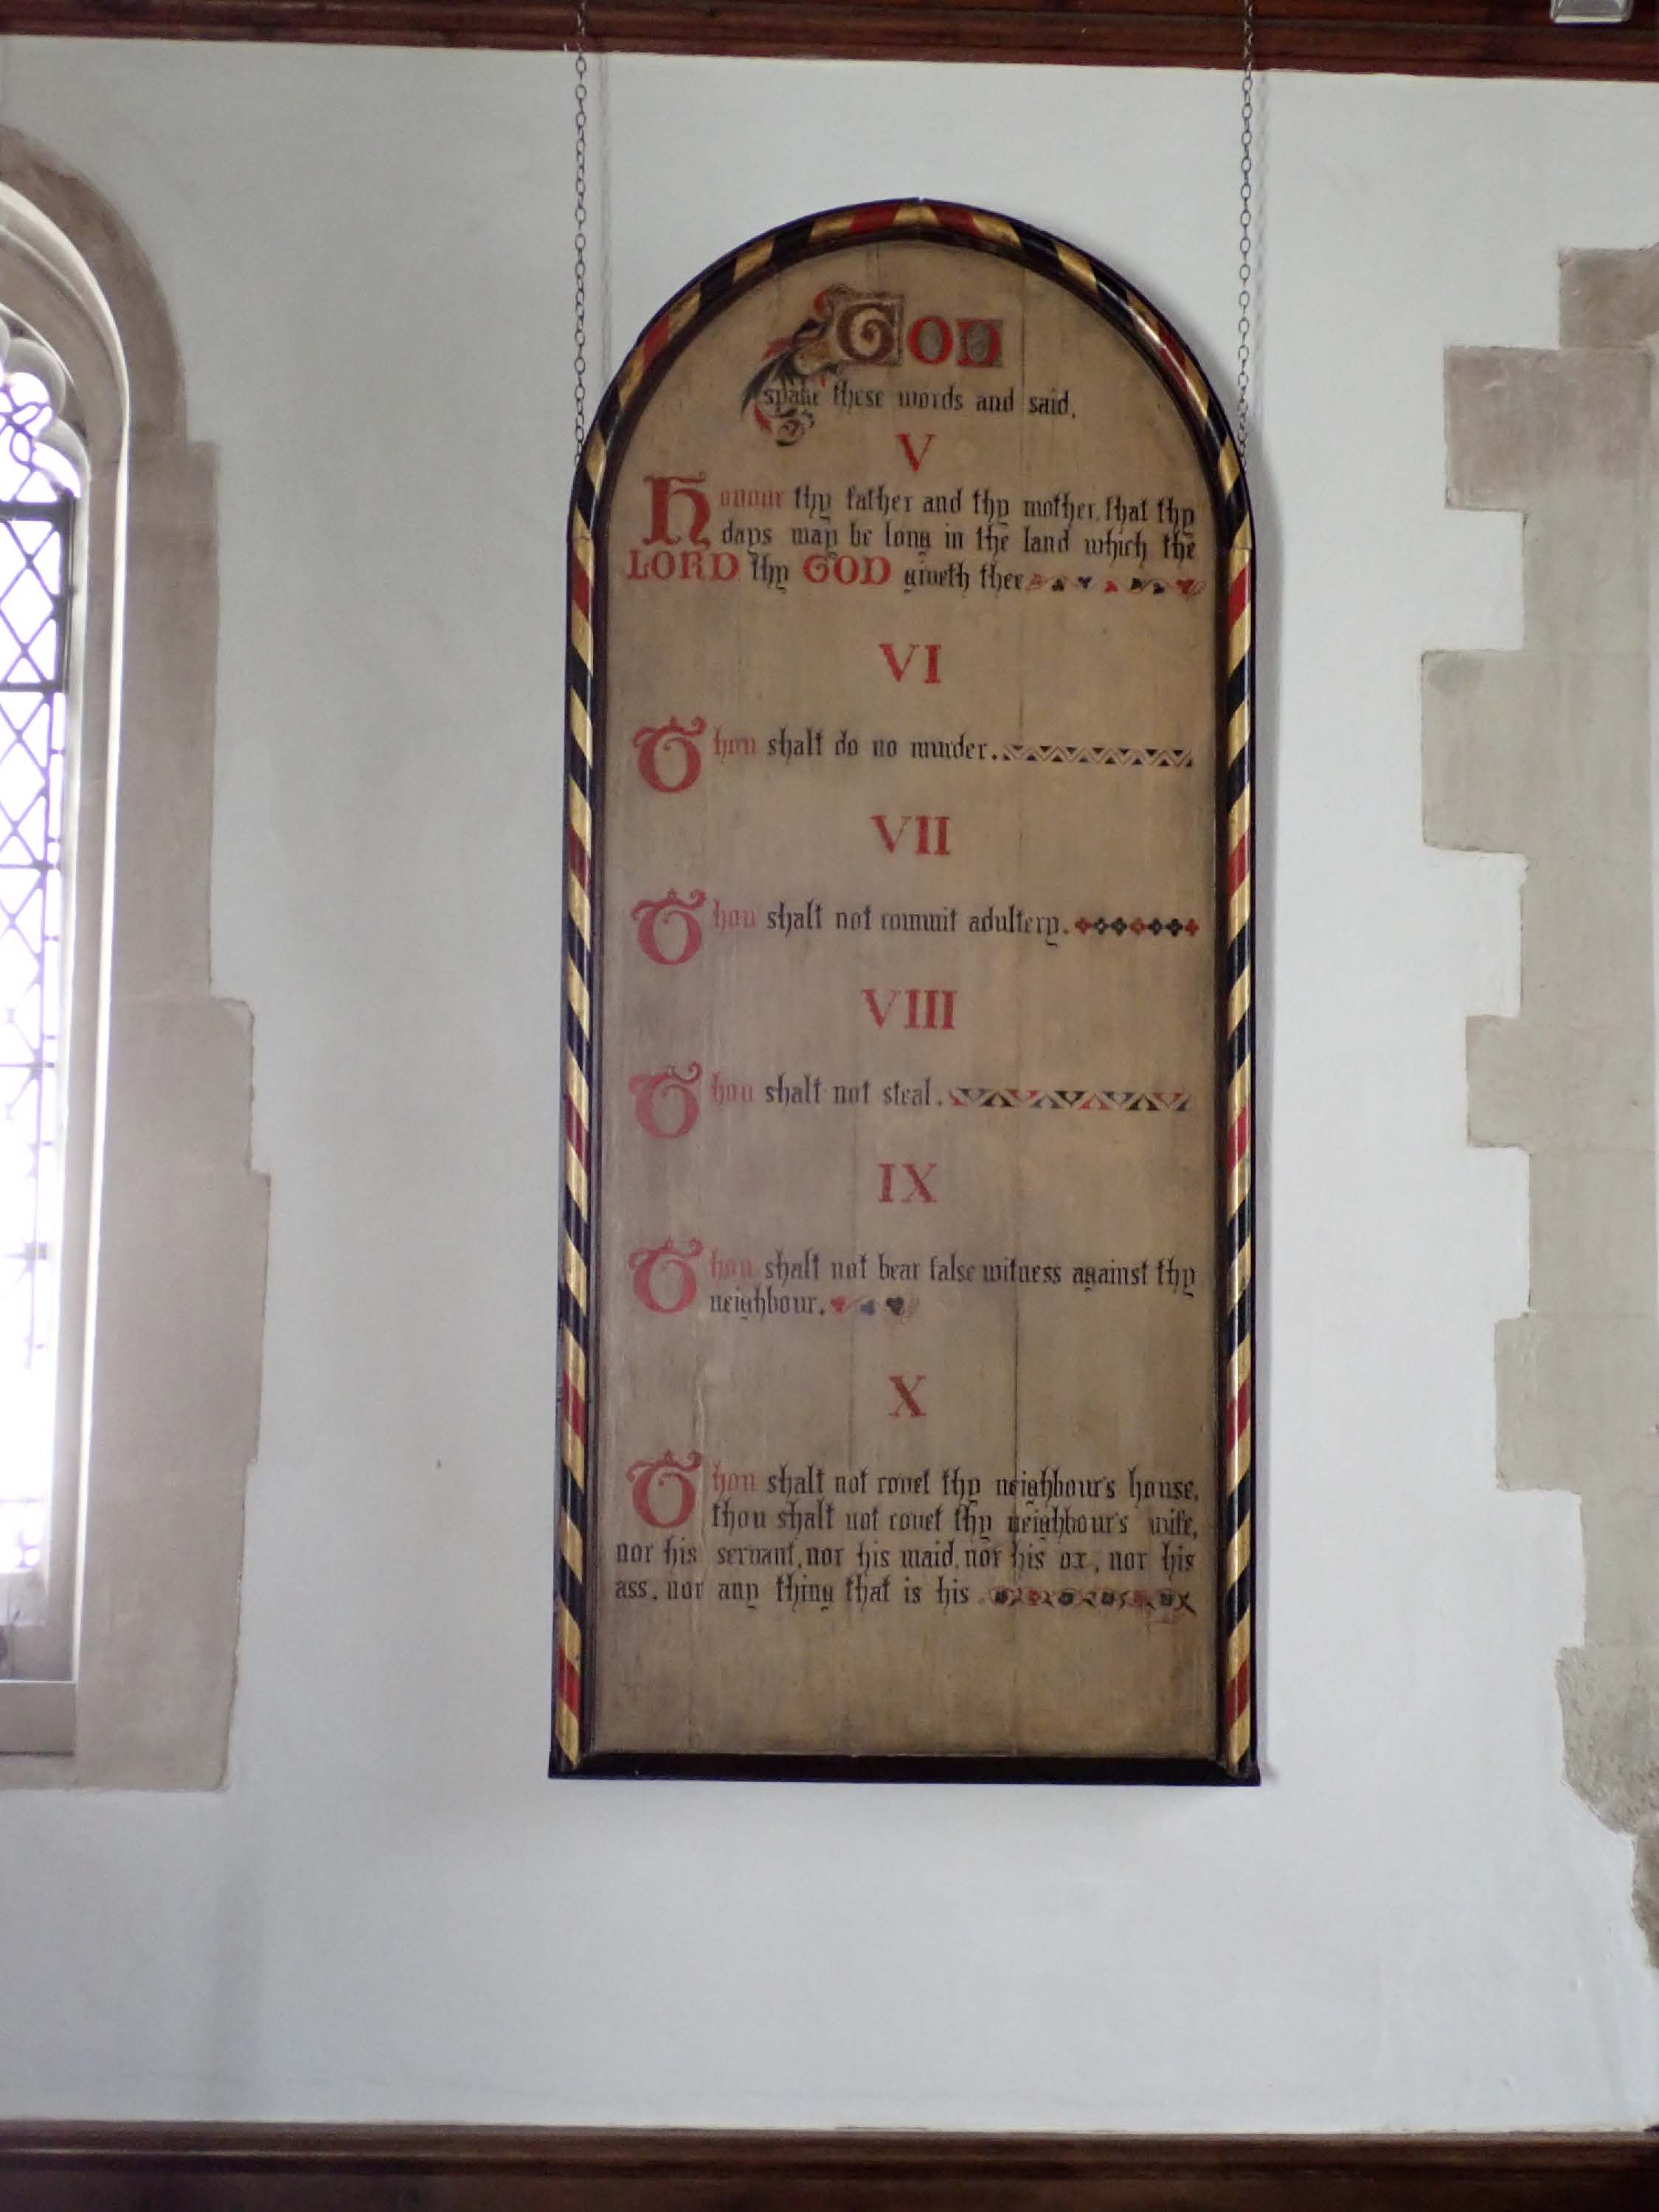 GOD
spake these words and said,
V
Honour thy father and thy mother, that thy
days may be long in the land which the
LORD thy GOD giveth thee
VI
Thou shalt do no murder.
VII
Thou shalt not commit adultery.
VIII
Thou shalt not steal.
IX
Thou shalt not bear false witness against thy
neighbour.
X
Thou shalt not covet thy neighbour's house,
thou shalt not covet thy neighbour's wife,
nor his servant, nor his maid, nor his ox, nor his
ass, nor any thing that is his.